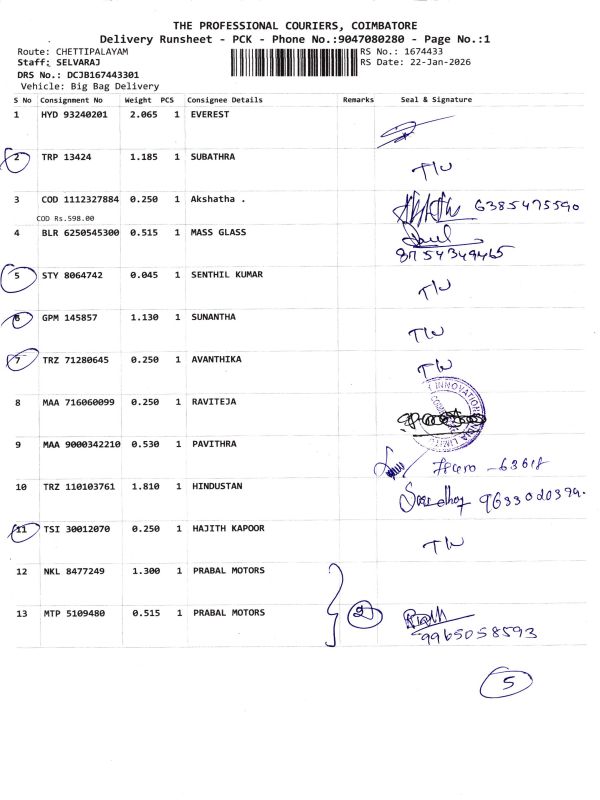 THE PROFESSIONAL COURIERS, COIMBATORE
Delivery Runsheet - PCK - Phone No.:9047080280 - Page No.:1
Route: CHETTIPALAYAM RS No.: 1674433
Staff: SELVARAJ RS Date: 22-Jan-2026
DRS No.: DCJB167443301
Vehicle: Big Bag Delivery
S No Consignment No Weight PCS Consignee Details Remarks Seal & Signature
1 HYD 93240201 2.065 1 EVEREST
2 TRP 13424 1.185 1 SUBATHRA T/W
3 COD 1112327884 0.250 1 Akshatha . 6385475590
COD Rs.598.00
4 BLR 6250545300 0.515 1 MASS GLASS
8754349465
5 STY 8064742 0.045 1 SENTHIL KUMAR T/W
6 GPM 145857 1.130 1 SUNANTHA T/W
7 TRZ 71280645 0.250 1 AVANTHIKA T/W
8 MAA 716060099 0.250 1 RAVITEJA
9 MAA 9000342210 0.530 1 PAVITHRA
10 TRZ 110103761 1.810 1 HINDUSTAN
11 TSI 30012070 0.250 1 HAJITH KAPOOR T/W
12 NKL 8477249 1.300 1 PRABAL MOTORS
13 MTP 5109480 0.515 1 PRABAL MOTORS 2
9965058593
5